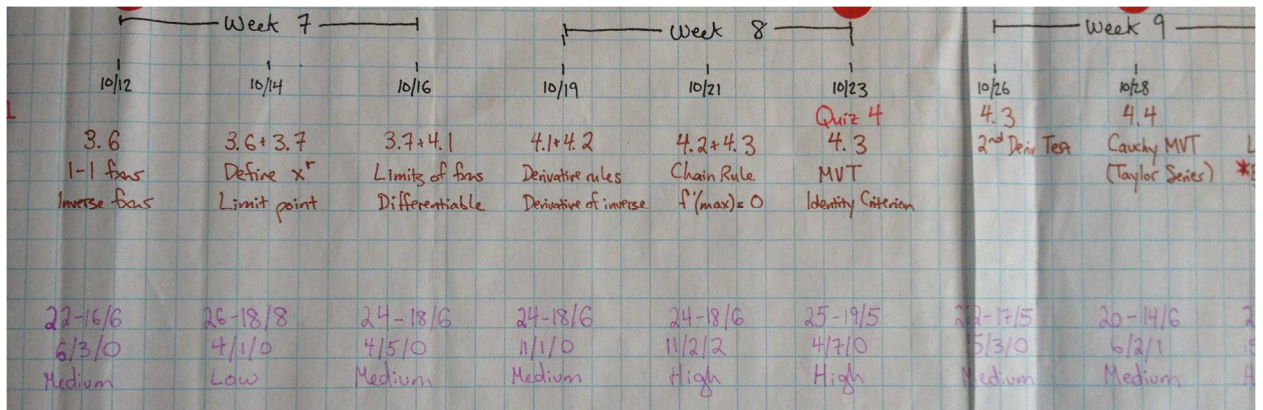 Week 7 Week 8 Week 9
10/12 10/14 10/16 10/19 10/21 10/23 10/26 10/28
Quiz 4 4.3 4.4
3.6 3.6+3.7 3.7+4.1 4.1+4.2 4.2+4.3 4.3 2nd Deriv Test Cauchy MVT
1-1 fxns Define x^r Limits of fxns Derivative rules Chain Rule MVT (Taylor Series)
Inverse fxns Limit point Differentiable Derivative of inverse f'(max)=0 Identity Criterion
22-16/6 26-18/8 24-18/6 24-18/6 24-18/6 25-19/5 22-17/5 20-14/6
6/3/0 4/1/0 4/5/0 11/1/0 11/2/2 4/7/0 5/3/0 6/2/1
Medium Low Medium Medium High High Medium Medium